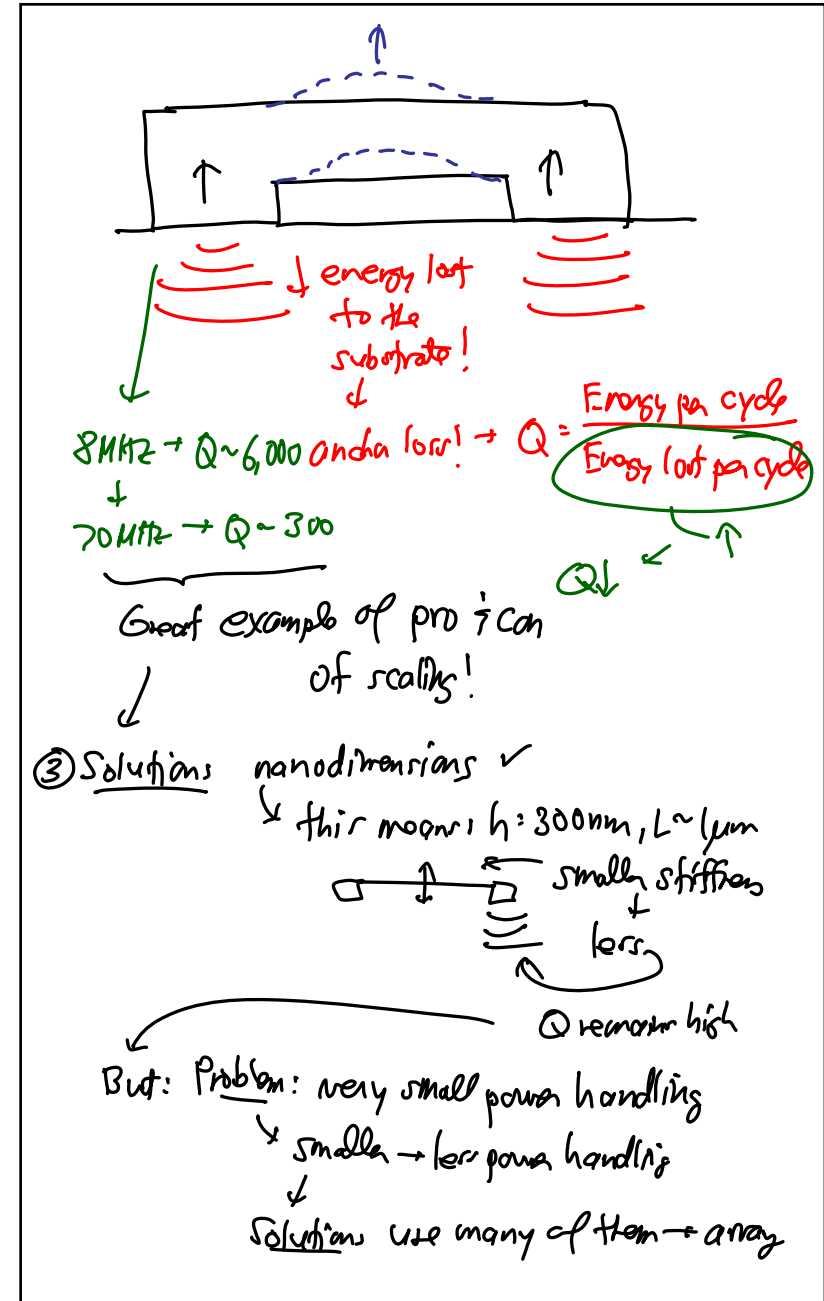 energy lost
to the
substrate!
8MHz → Q~6,000 anchor loss! → Q = Energy per cycle
Energy lost per cycle
70MHz → Q~300
Q↓
Great example of pro & con
of scaling!
③ Solution: nanodimensions ✓
this means: h=300nm, L~1μm
smaller stiffness
less
Q remains high
But: Problem: very small power handling
smaller → less power handling
Solution: use many of them → array